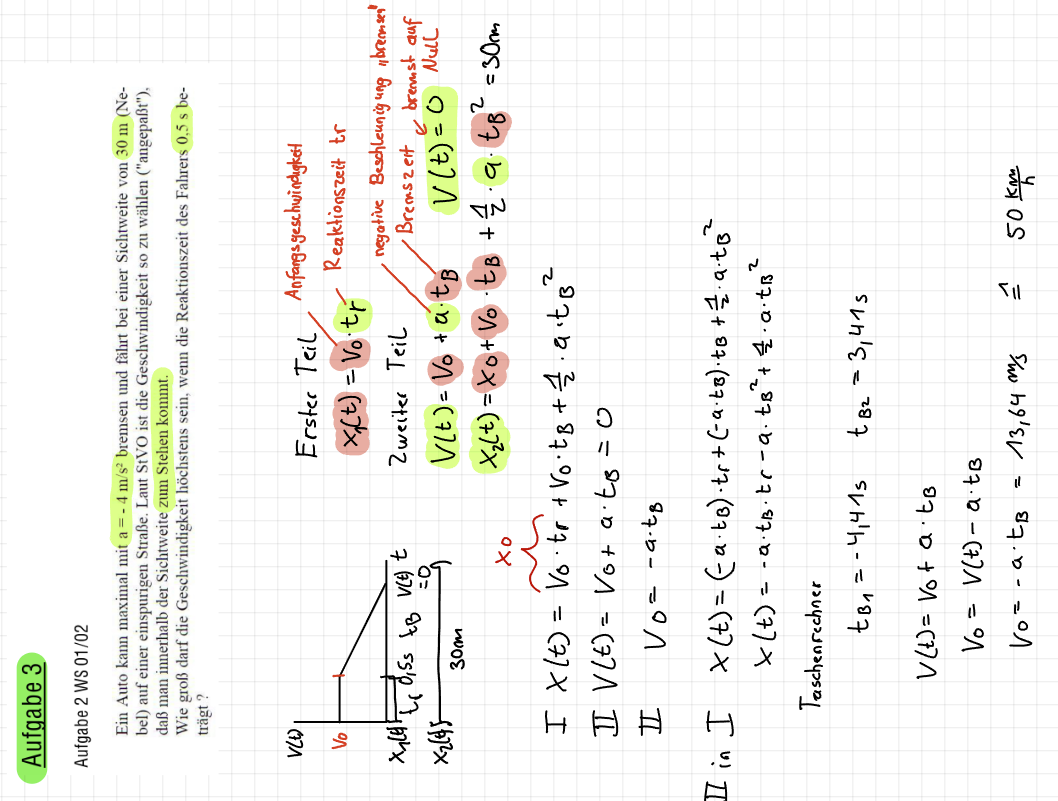 Aufgabe 3
Aufgabe 2 WS 01/02
Ein Auto kann maximal mit a = - 4 m/s² bremsen und fährt bei einer Sichtweite von 30 m (Ne-
bel) auf einer einspurigen Straße. Laut StVO ist die Geschwindigkeit so zu wählen ("angepaßt"),
daß man innerhalb der Sichtweite zum Stehen kommt.
Wie groß darf die Geschwindigkeit höchstens sein, wenn die Reaktionszeit des Fahrers 0,5 s be-
trägt ?
V(t)
V₀
t
x₁(t) tr 0,5s tB V(t) = 0
x₂(t) 30m
Erster Teil
Anfangsgeschwindigkeit
x₁(t) = V₀ · tr
Reaktionszeit tr
Zweiter Teil
negative Beschleunigung „bremsen"
Bremszeit
bremst auf Null
V(t) = V₀ + a · tB
V(t) = 0
x₂(t) = x₀ + V₀ · tB + 1/2 · a · tB² = 30m
x₀
I x(t) = V₀ · tr + V₀ · tB + 1/2 · a · tB²
II V(t) = V₀ + a · tB = 0
II V₀ = -a · tB
II in I x(t) = (-a · tB) · tr + (-a · tB) · tB + 1/2 · a · tB²
x(t) = -a · tB · tr - a · tB² + 1/2 · a · tB²
Taschenrechner
tB1 = -4,41s tB2 = 3,41s
V(t) = V₀ + a · tB
V₀ = V(t) - a · tB
V₀ = -a · tB = 13,64 m/s ≙ 50 km/h